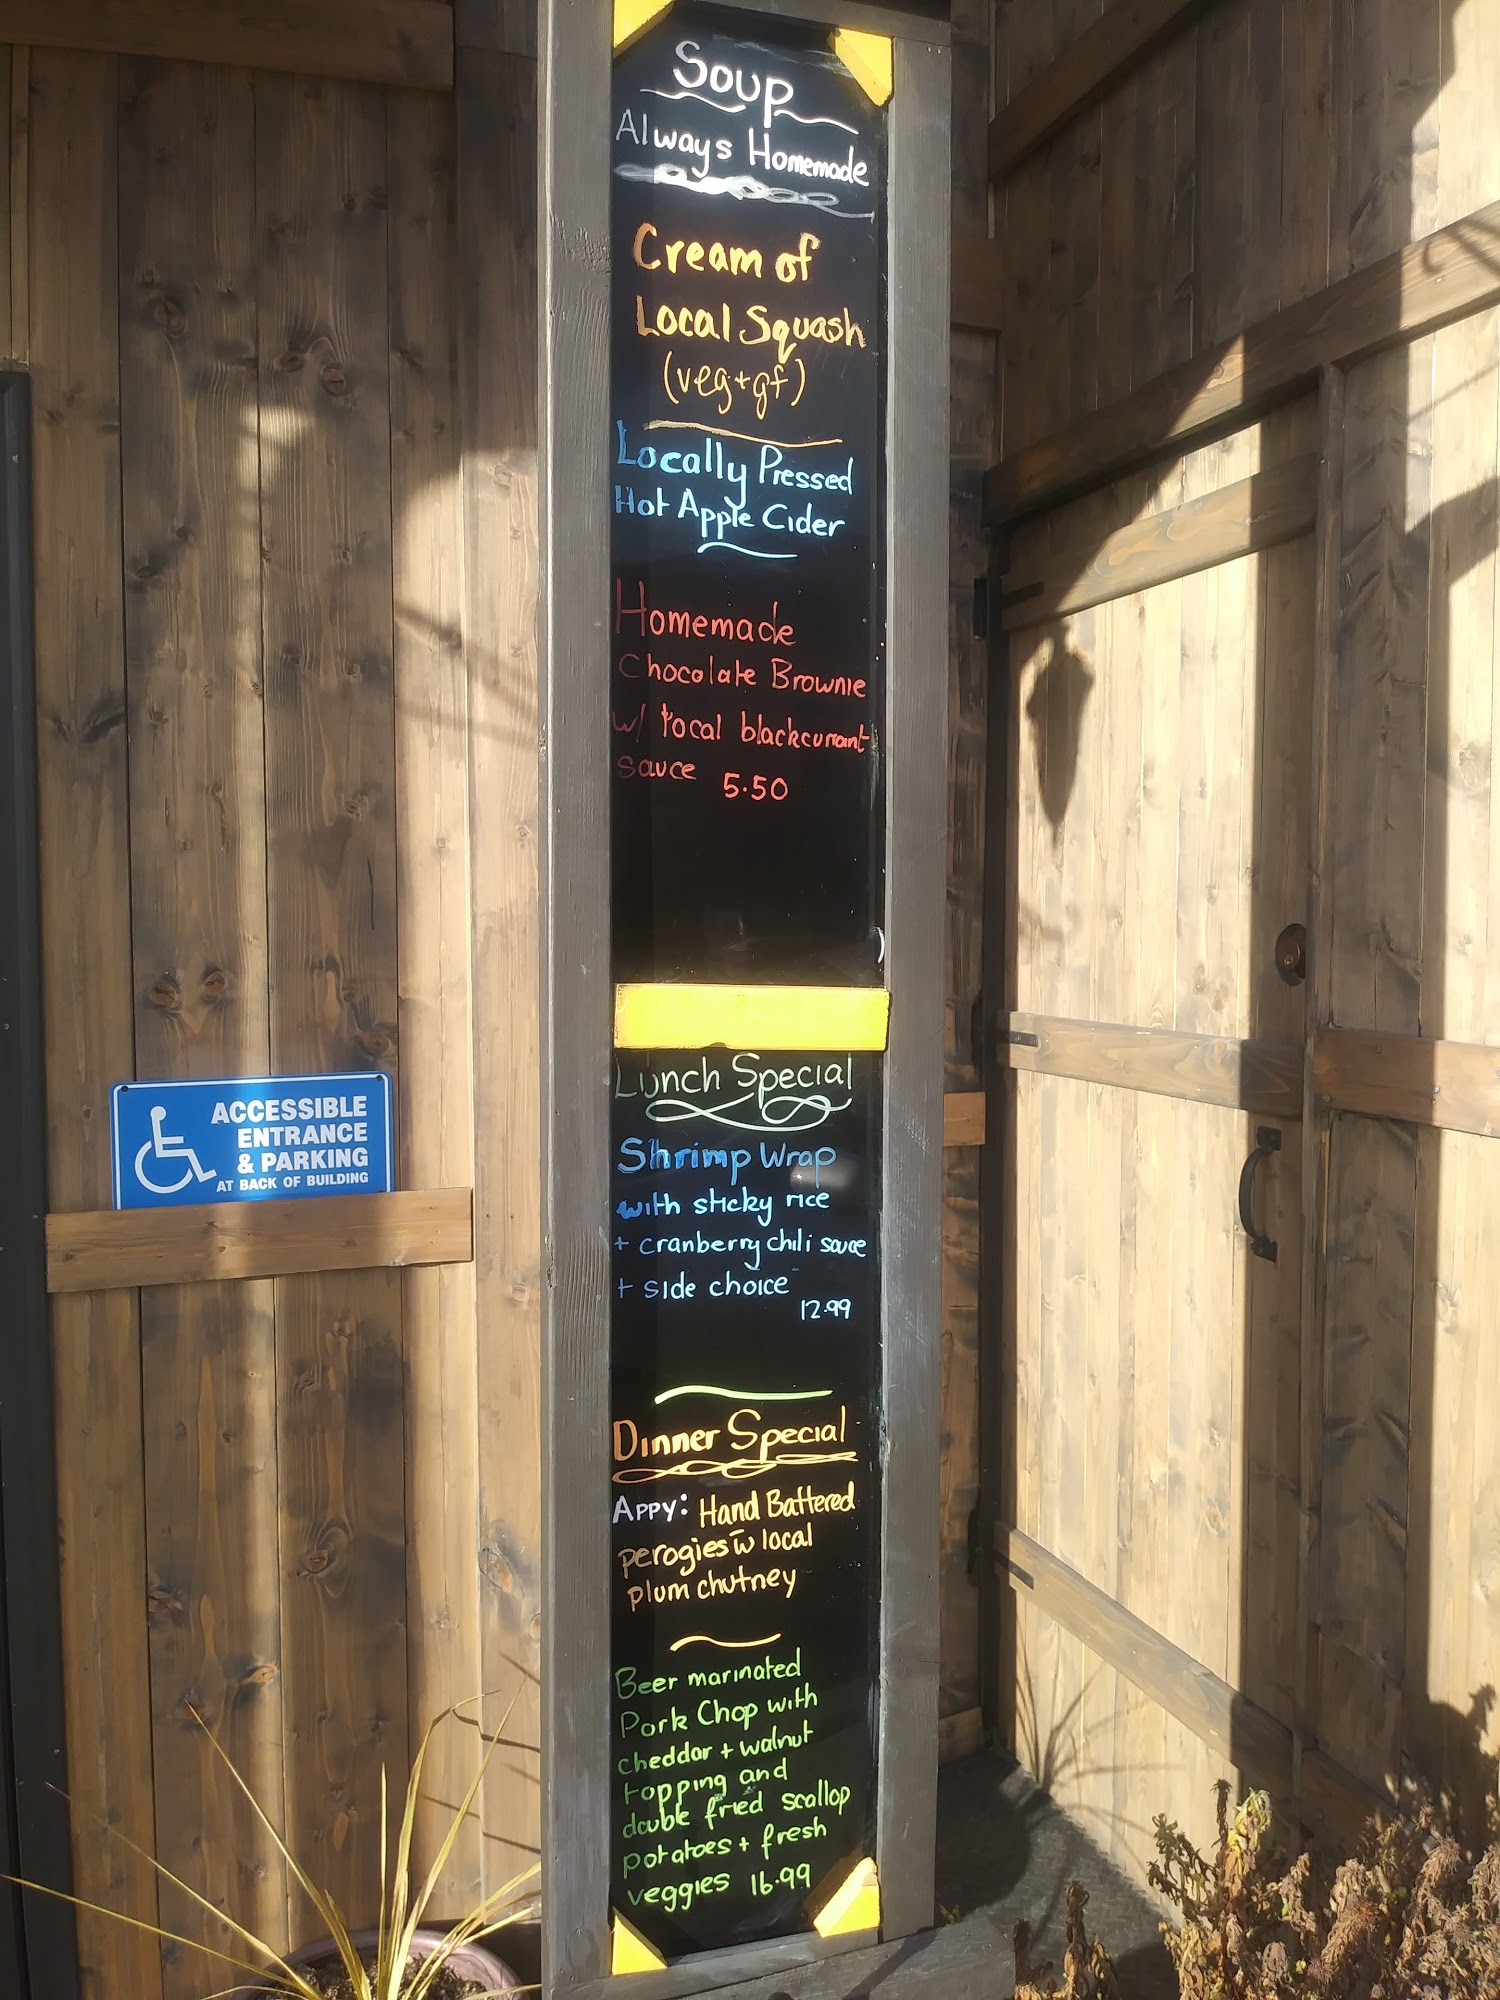 Soup
Always Homemade
Cream of
Local Squash
(veg+gf)
Locally Pressed
Hot Apple Cider
Homemade
Chocolate Brownie
w/ local blackcurrant
sauce 5.50
Lunch Special
Shrimp Wrap
with sticky rice
+ cranberry chili sauce
+ side choice
12.99
Dinner Special
Appy: Hand Battered
perogies w local
plum chutney
Beer marinated
Pork Chop with
cheddar + walnut
topping and
double fried scallop
potatoes + fresh
veggies 16.99
ACCESSIBLE
ENTRANCE
& PARKING
AT BACK OF BUILDING